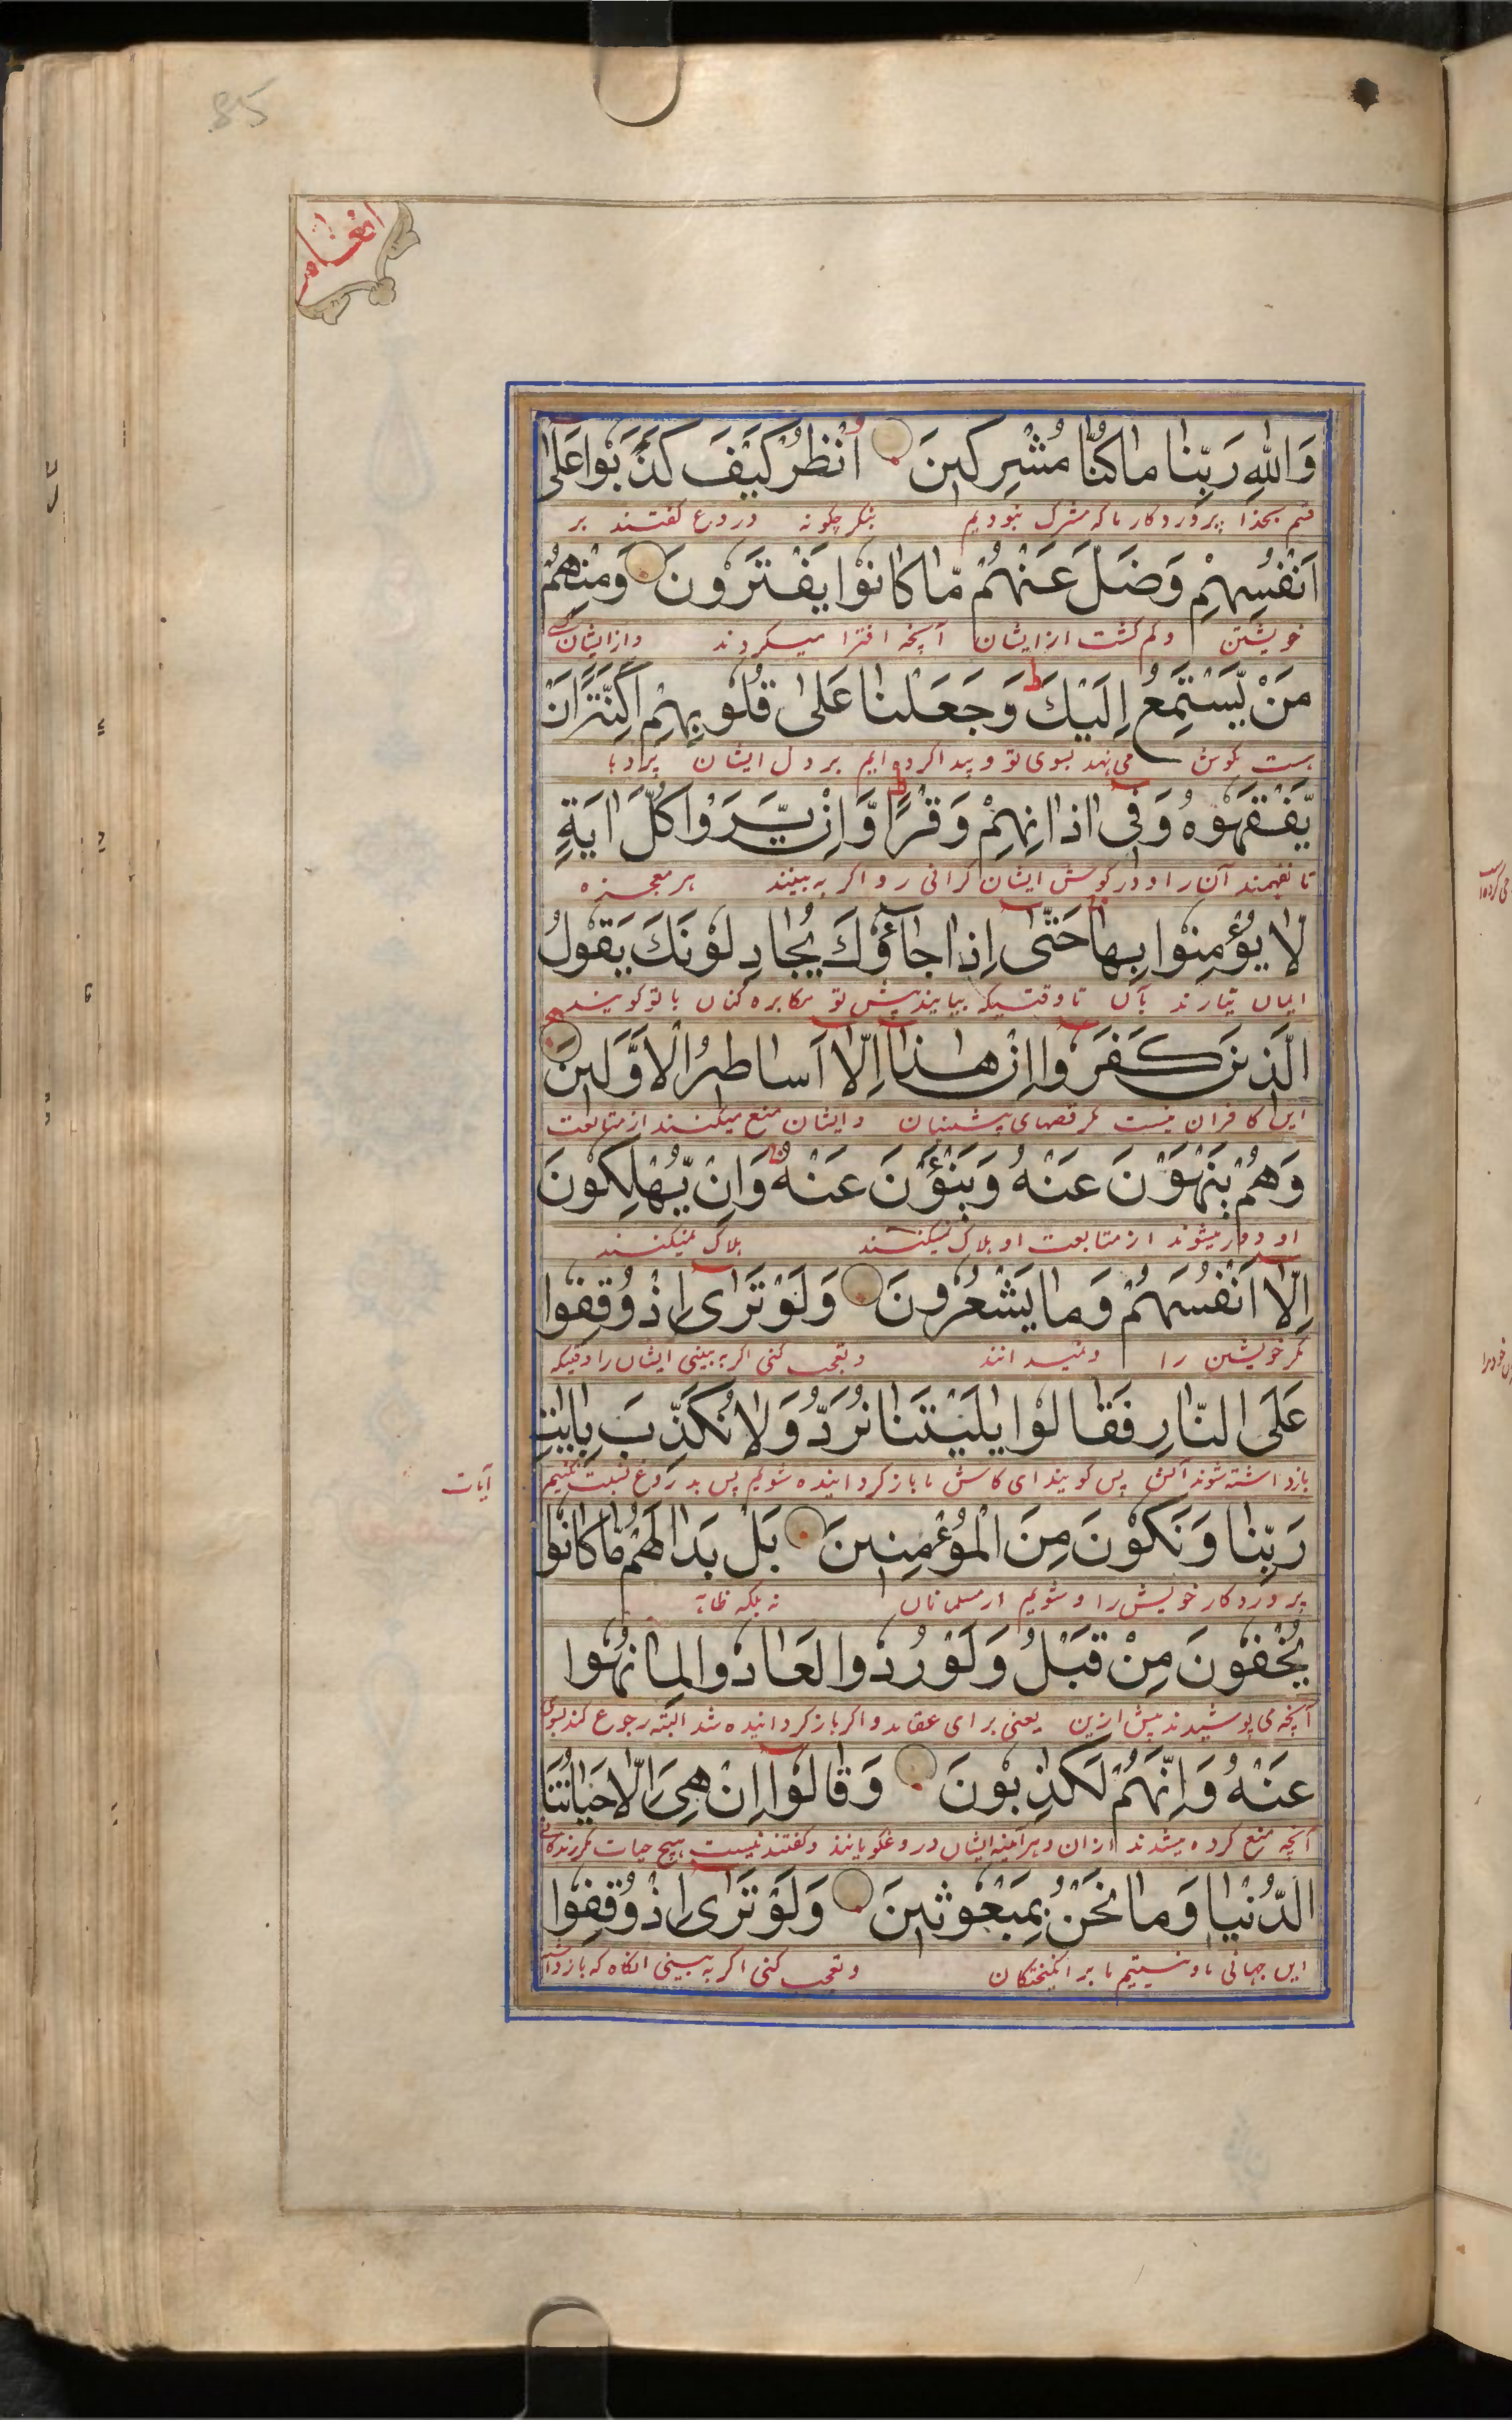 85
انعام
وَاللهِ رَبِّنَا مَا كُنَّا مُشْرِكِينَ اُنْظُرْ كَيْفَ كَذَبُوا عَلٰى
قسم بخدا پروردکار ما که مشرک نبودیم بنکر چکونه دروغ کفتند بر
اَنْفُسِهِمْ وَضَلَّ عَنْهُمْ مَّا كَانُوا يَفْتَرُونَ وَمِنْهُمْ
خویشتن و کم کشت از ایشان آنچه افترا میکردند و از ایشان کسی
مَنْ يَّسْتَمِعُ اِلَيْكَ ط وَجَعَلْنَا عَلٰى قُلُوبِهِمْ اَكِنَّةً اَنْ
هست کوش می نهد بسوی تو و پیدا کرده ایم بر دل ایشان پردها
يَّفْقَهُوهُ وَفِى اٰذَانِهِمْ وَقْرًا ط وَّاِنْ يَّرَوْا كُلَّ اٰيَةٍ
تا نفهمند آن را و در کوش ایشان کرانی را و اکر به بینند هر معجزه
لَا يُؤْمِنُوا بِهَا حَتّٰى اِذَا جَاؤُكَ يُجَادِلُونَكَ يَقُولُ
ایمان نیارند بآن تا وقتیکه بیایند پیش تو مکابره کنان با تو کویند
الَّذِينَ كَفَرُوا اِنْ هٰذَا اِلَّا اَسَاطِيرُ الْاَوَّلِينَ
این کافران نیست مکر قصهای پیشینیان و ایشان منع میکنند از متابعت
وَهُمْ يَنْهَوْنَ عَنْهُ وَيَنْئَوْنَ عَنْهُ وَاِنْ يُّهْلِكُونَ
او و دور میشوند از متابعت او هلاک نمیکنند هلاک نمیکنند
اِلَّا اَنْفُسَهُمْ وَمَا يَشْعُرُونَ وَلَوْ تَرٰى اِذْ وُقِفُوا
مکر خویشتن را و نمیدانند و تعجب کنی اکر به بینی ایشان را وقتیکه
عَلَى النَّارِ فَقَالُوا يٰلَيْتَنَا نُرَدُّ وَلَا نُكَذِّبَ بِاٰيٰتِ
بازداشته شوند آتش پس کویند ای کاش ما باز کردانیده شویم پس بدروغ نسبت نکنیم
آیات
رَبِّنَا وَنَكُونَ مِنَ الْمُؤْمِنِينَ بَلْ بَدَا لَهُمْ مَّا كَانُوا
پروردکار خویش را و شویم از مسلمانان نه بلکه ظاهر
يُخْفُونَ مِنْ قَبْلُ وَلَوْ رُدُّوا لَعَادُوا لِمَا نُهُوا
آنچه می پوشیدند پیش ازین یعنی برای عقاید و اکر باز کردانیده شد البته رجوع کند بسوی
عَنْهُ وَاِنَّهُمْ لَكٰذِبُونَ وَقَالُوا اِنْ هِىَ اِلَّا حَيَاتُنَا
آنچه منع کرده میشدند از ان و هر آئینه ایشان دروغکویانند و کفتند نیست هیچ حیات مکر زندکانی
الدُّنْيَا وَمَا نَحْنُ بِمَبْعُوثِينَ وَلَوْ تَرٰى اِذْ وُقِفُوا
این جهانی ما و نیستیم ما بر انکیختکان و تعجب کنی اکر به بینی انکاه که بازداشته